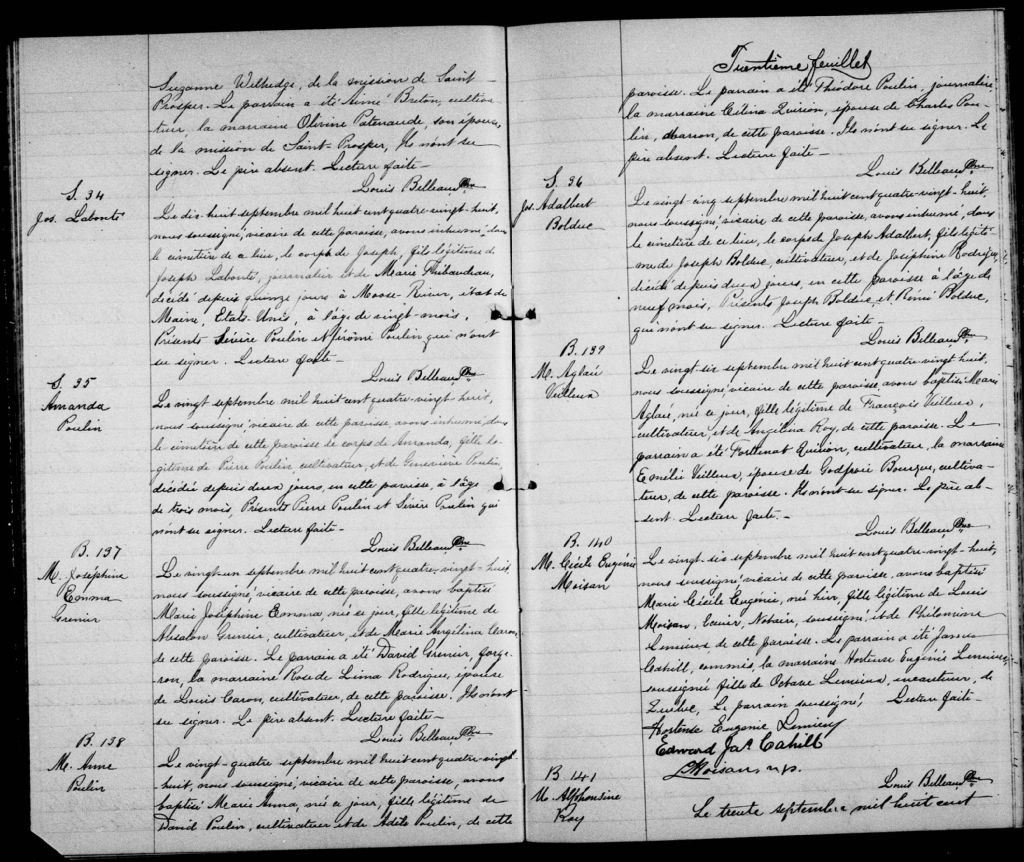 Suzanne Welledge, de la mission de Saint-
Prosper. Le parrain a été Aimé Breton, cultiva-
teur, la marraine Olivine Patenaude, son épouse,
de la mission de Saint-Prosper, Ils n'ont su
signer. Le père absent. Lecture faite -
Louis Belleau Ptre
S. 34
Jos. Labonté
Le dix-huit septembre mil huit cent quatre-vingt-huit,
nous soussigné, vicaire de cette paroisse, avons inhumé, dans
le cimetière de ce lieu, le corps de Joseph, fils légitime de
Joseph Labonté, journalier et de Marie Thibaudeau,
décédé depuis quinze jours à Moose-River, état de
Maine, Etats-Unis, à l'âge de vingt-mois.
Présents Sévère Poulin et Jérôme Poulin qui n'ont
su signer. Lecture faite -
Louis Belleau Ptre
S. 35
Amanda
Poulin
Le vingt septembre mil huit cent quatre-vingt-huit,
nous soussigné, vicaire de cette paroisse, avons inhumé, dans
le cimetière de cette paroisse le corps de Amanda, fille lé-
gitime de Pierre Poulin cultivateur, et de Geneviève Poulin,
décédée depuis deux jours, en cette paroisse, à l'âge
de trois mois, Présents Pierre Poulin et Sévère Poulin qui
n'ont su signer. Lecture faite -
Louis Belleau Ptre
B. 137
M. Joséphine
Emma
Grenier
Le vingt-un septembre mil huit cent quatre-vingt-huit
nous soussigné, vicaire de cette paroisse, avons baptisé
Marie Joséphine Emma, née ce jour, fille légitime de
Absalon Grenier, cultivateur, et de Marie Angélina Caron,
de cette paroisse. Le parrain a été David Grenier, forge-
ron, la marraine Rose de Lima Rodrigue, épouse
de Louis Caron, cultivateur, de cette paroisse. Ils n'ont
su signer. Le père absent. Lecture faite -
Louis Belleau Ptre
B. 138
M. Anne
Poulin
Le vingt-quatre septembre mil huit cent quatre-vingt
huit, nous soussigné, vicaire de cette paroisse, avons
baptisé Marie Anna, née ce jour, fille légitime de
David Poulin, cultivateur et de Adèle Poulin, de cette
Trentième feuillet
paroisse. Le parrain a été Théodore Poulin, journalier,
la marraine Célina Quirion, épouse de Charles Pou-
lin, charron, de cette paroisse. Ils n'ont su signer. Le
père absent. Lecture faite -
Louis Belleau Ptre
S. 36
Jos. Adalbert
Bolduc
Le vingt-cinq septembre mil huit cent quatre-vingt-huit
nous soussigné, vicaire de cette paroisse, avons inhumé, dans
le cimetière de ce lieu, le corps de Joseph Adalbert, fils légiti-
me de Joseph Bolduc, cultivateur, et de Joséphine Rodrigue,
décédé depuis deux jours, en cette paroisse à l'âge de
neuf mois, Présents Joseph Bolduc, et Rémi Bolduc,
qui n'ont su signer. Lecture faite
Louis Belleau Ptre
B. 139
M. Aglaé
Veilleux
Le vingt-six septembre mil huit cent quatre-vingt huit,
nous soussigné, vicaire de cette paroisse, avons baptisé Marie
Aglaé, née ce jour, fille légitime de François Veilleux,
cultivateur, et de Angélina Roy, de cette paroisse. Le
parrain a été Fortunat Quirion, cultivateur, la marraine
Emélie Veilleux, épouse de Godfroi Bourque, cultiva-
teur, de cette paroisse. Ils n'ont su signer. Le père ab-
sent. Lecture faite. -
Louis Belleau Ptre
B. 140
M. Cécile Eugénie
Moisan
Le vingt-six septembre mil huit cent quatre-vingt-huit,
nous soussigné, vicaire de cette paroisse, avons baptisé
Marie Cécile Eugénie, née hier, fille légitime de Louis
Moisan, Ecuier, Notaire, soussigné, et de Philomène
Lemieux de cette paroisse. Le parrain a été James
Cahill, commis, la marraine Hortense Eugénie Lemieux,
soussignée fille de Octave Lemieux, encanteur, de
Québec, Le parrain soussigné, Lecture faite -
Hortense Eugenie Lemieux
Edward Jas Cahill
L. Moisan, n.p.
Louis Belleau Ptre
B. 141
M. Alphonsine
Roy
Le trente septembre mil huit cent